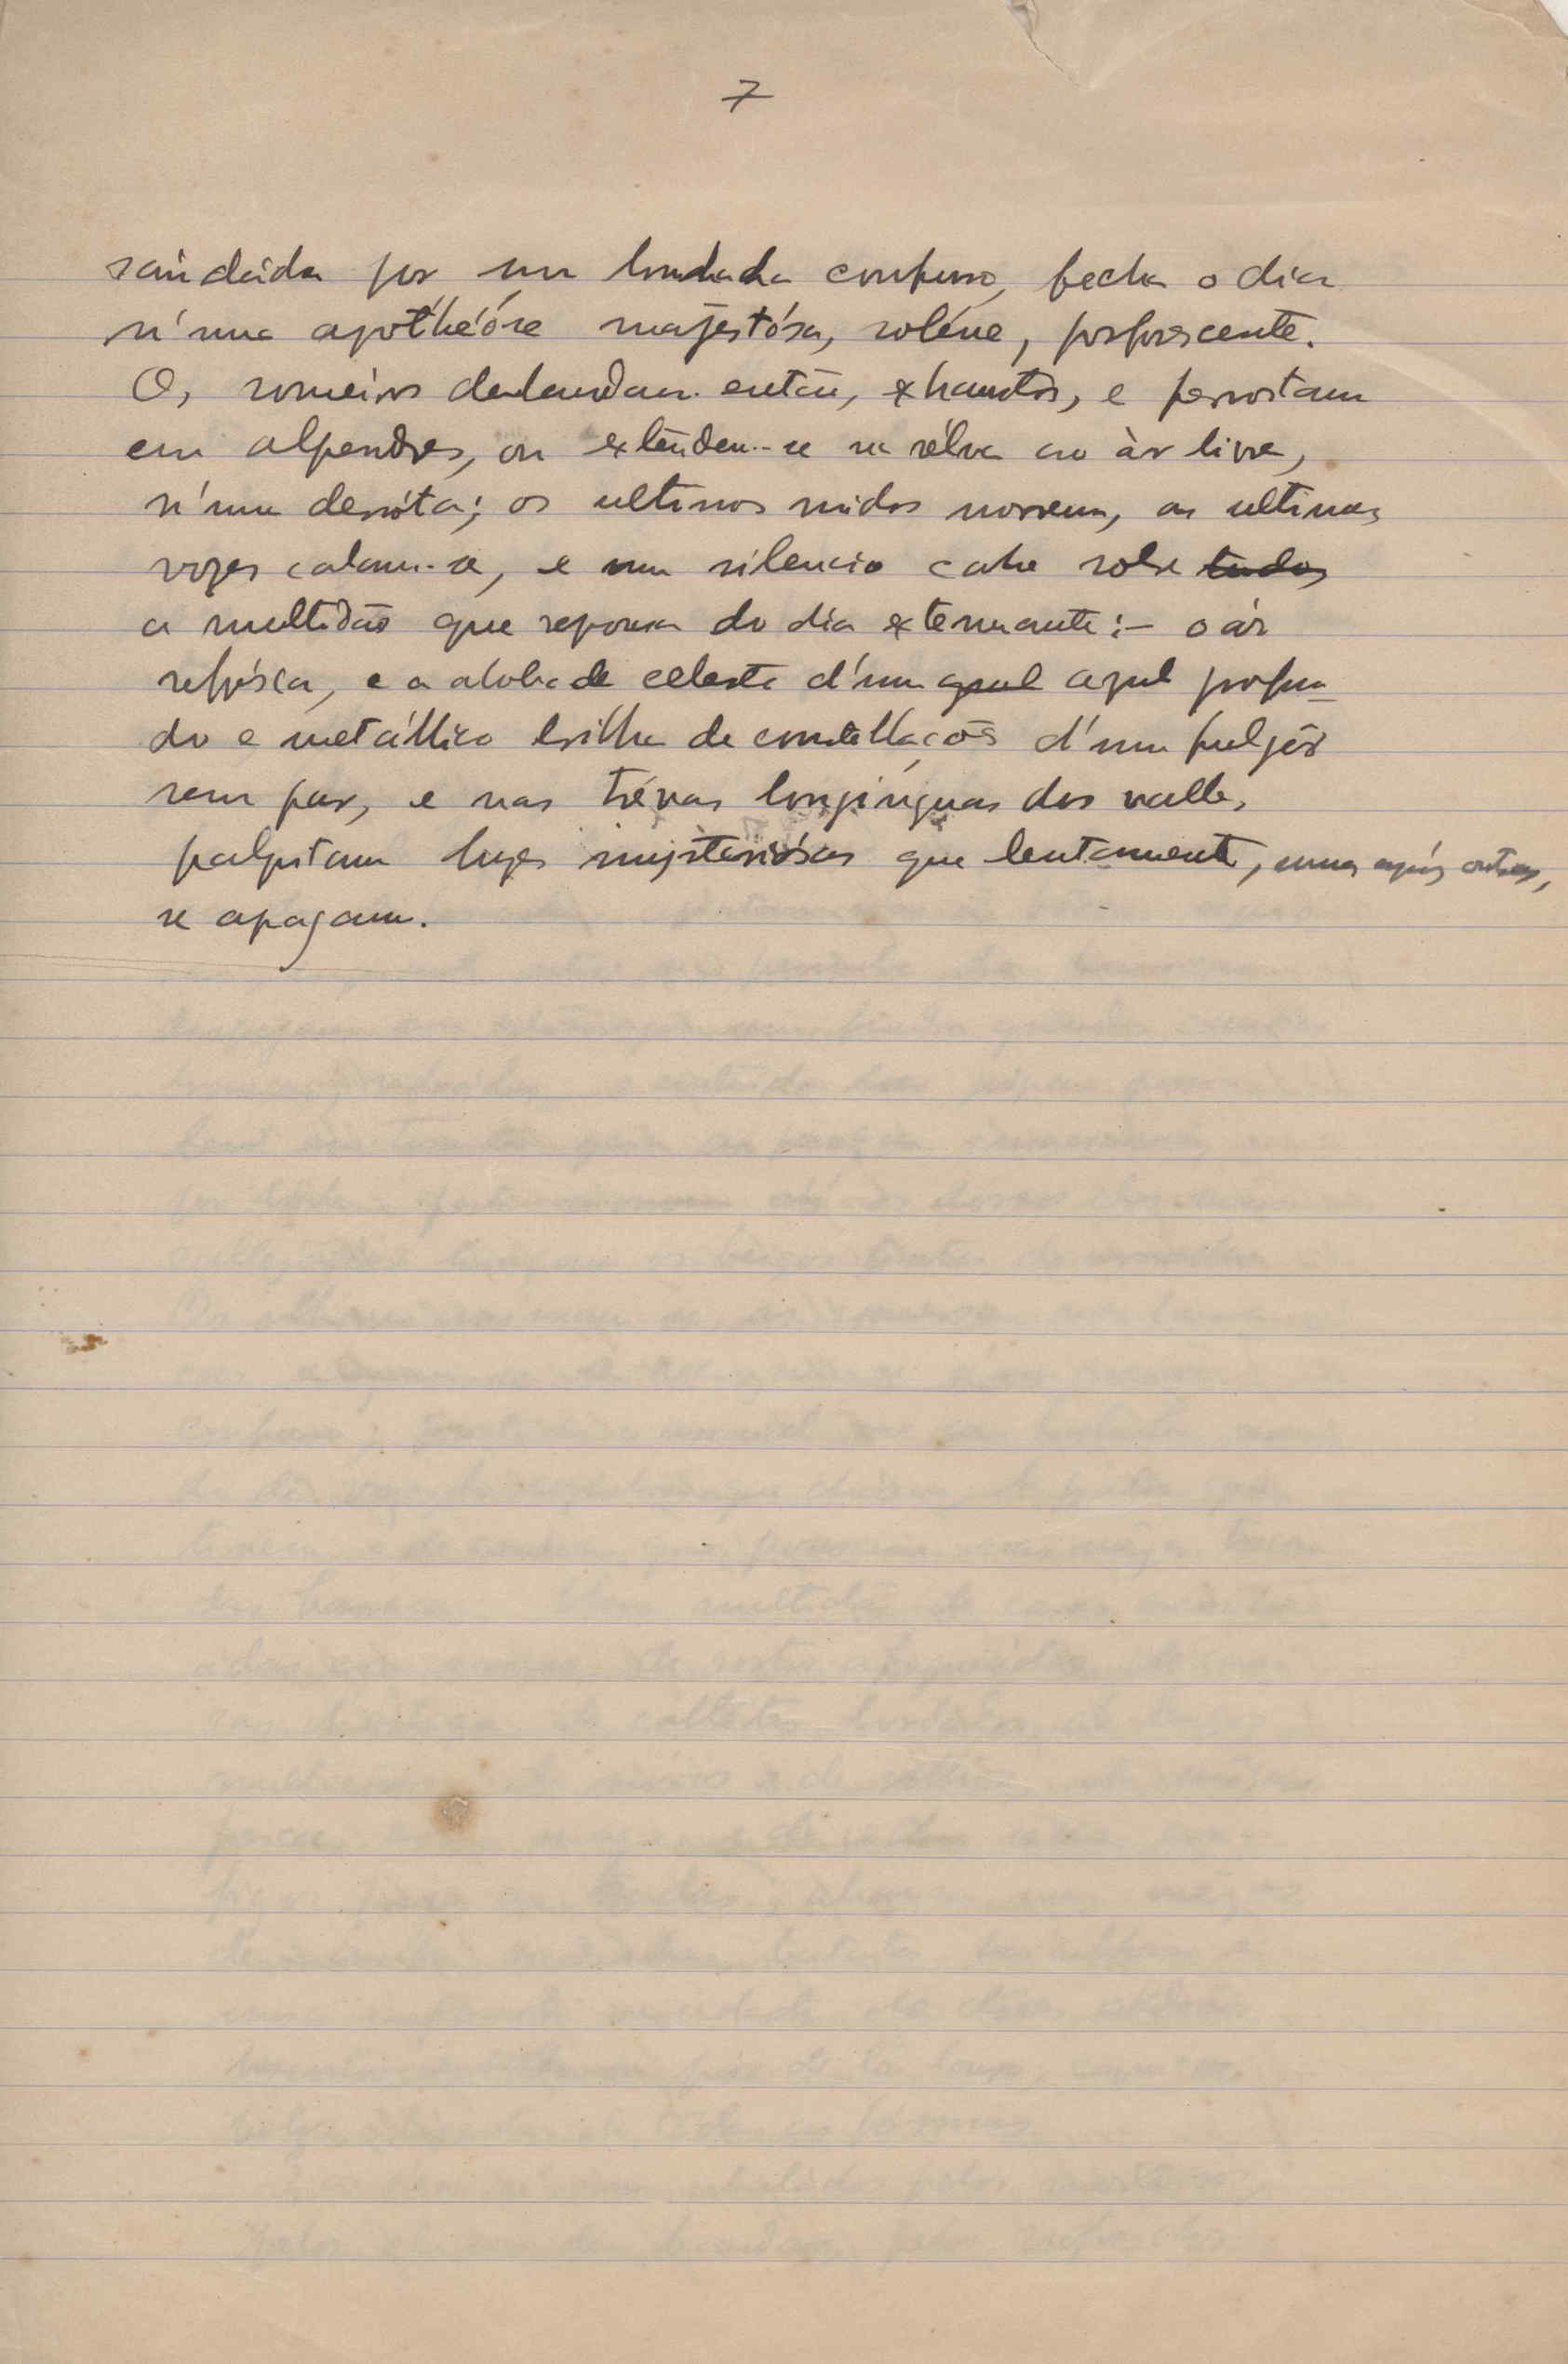 7
saúdada por um bruhaha confuso, fecha o dia
n'uma apothéóse majestósa, soléne, fosforescente.
Os romeiros debandam então, exhaustos, e pernoitam
em alpendres, ou extendem-se na rélva ao àr livre,
n'uma derróta; os ultimos ruidos morrem, as ultimas
vozes calam-se, e um silencio cahe sobre todos
a multidão que repousa do dia extenuante:- o ár
refrésca, e a abobade celeste d'um azul azul profun-
do e metállico brilha de constellações d'um fulgôr
sem par, e nas trévas longínquas dos valles,
palpitam luzes mysteriósas que lentamente, umas após outras,
se apagam.